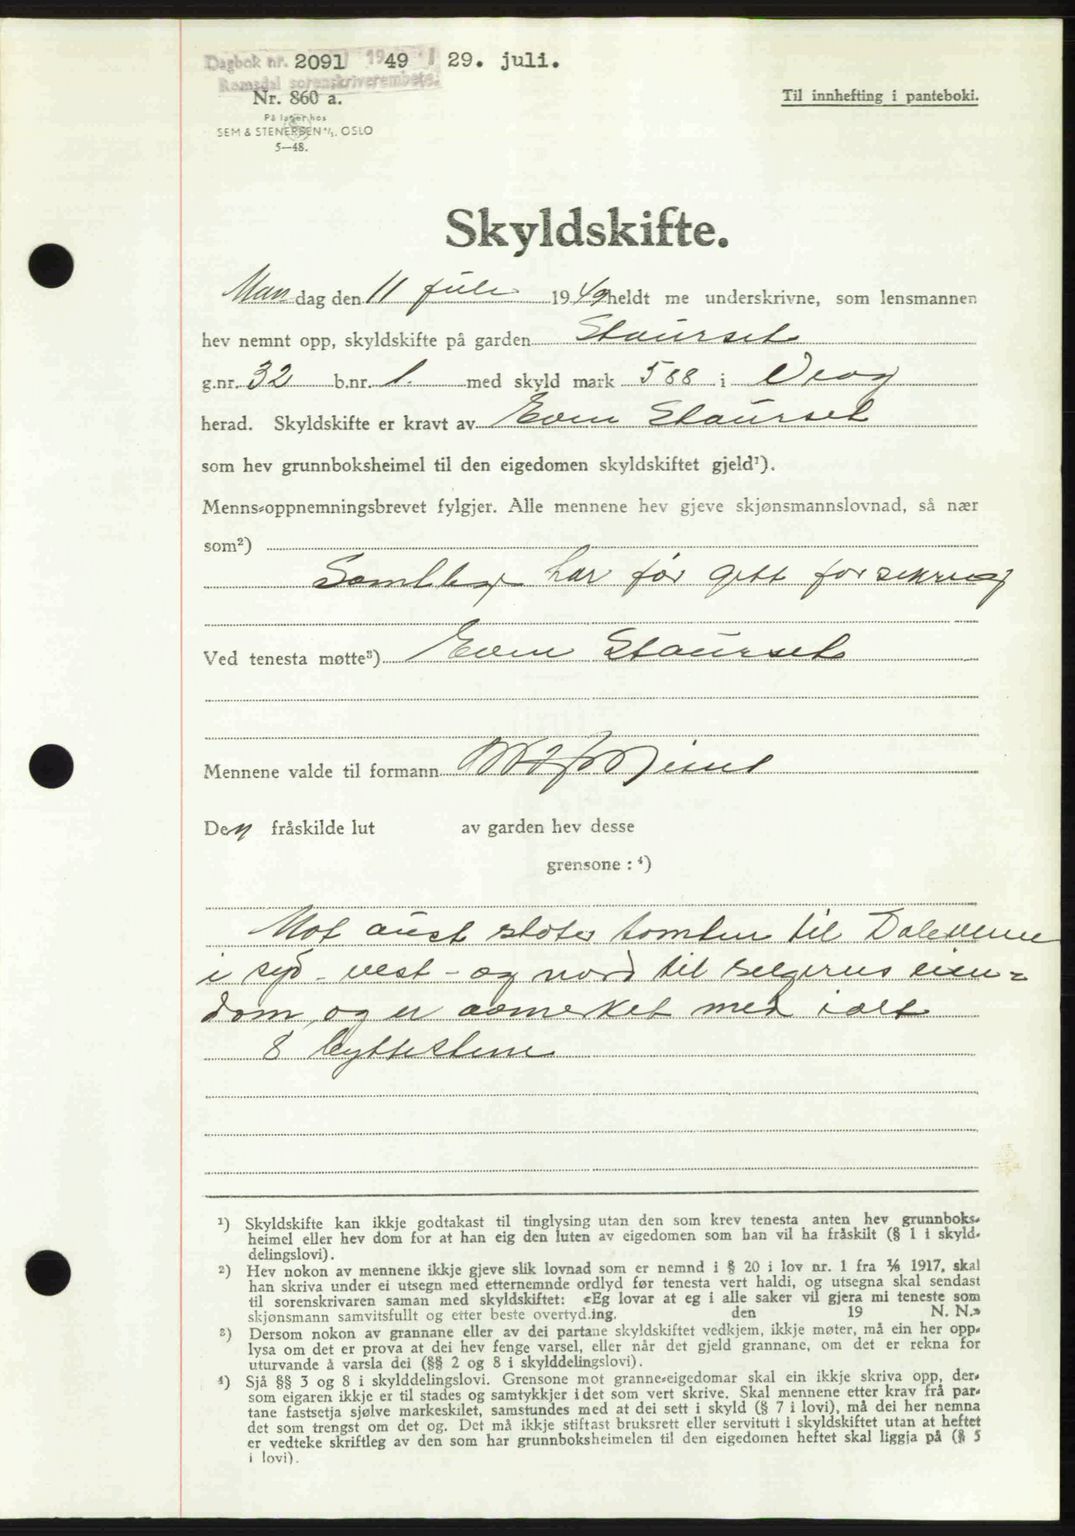 Dagbok nr. 2091 1949 29. juli.
Romsdal sorenskriverembete.
Nr. 860 a.
Til innhefting i panteboki.
På lager hos
SEM & STENERSEN A/S, OSLO
5—48.
Skyldskifte.
Mandag den 11 juli 1949 heldt me underskrivne, som lensmannen
hev nemnt opp, skyldskifte på garden Staurset
g.nr. 32 b.nr. 1. med skyld mark 588 i Veøy
herad. Skyldskifte er kravt av Even Staurset
som hev grunnboksheimel til den eigedomen skyldskiftet gjeld¹).
Menns-oppnemningsbrevet fylgjer. Alle mennene hev gjeve skjønsmannslovnad, så nær
som²)
Samtlige har før gitt forsikring
Ved tenesta møtte³) Even Staurset
Mennene valde til formann
Den fråskilde lut av garden hev desse
grensone : ⁴)
Mot aust støter tomten til Daleveien
i syd - vest - og nord til selgerens eien-
dom og er avmerket med ialt
8 byttestene
¹) Skyldskifte kan ikkje godtakast til tinglysing utan den som krev tenesta anten hev grunnboks-
heimel eller hev dom for at han eig den luten av eigedomen som han vil ha fråskilt (§ 1 i skyld-
delingslovi).
²) Hev nokon av mennene ikkje gjeve slik lovnad som er nemnd i § 20 i lov nr. 1 fra ⅙ 1917, skal
han skriva under ei utsegn med etternemnde ordlyd før tenesta vert haldi, og utsegna skal sendast
til sorenskrivaren saman med skyldskiftet: «Eg lovar at eg i alle saker vil gjera mi teneste som
skjønsmann samvitsfullt og etter beste overtyding. den 19 N. N.»
³) Dersom nokon av grannane eller av dei partane skyldskiftet vedkjem, ikkje møter, må ein her opp-
lysa om det er prova at dei hev fenge varsel, eller når det gjeld grannane, om det er rekna for
uturvande å varsla dei (§§ 2 og 8 i skylddelingslovi).
⁴) Sjå §§ 3 og 8 i skylddelingslovi. Grensone mot granne-eigedomar skal ein ikkje skriva opp, der-
som eigaren ikkje er til stades og samtykkjer i det som vert skrive. Skal mennene etter krav frå par-
tane fastsetja sjølve markeskilet, samstundes med at dei sett i skyld (§ 7 i lovi), må dei her nemna
det som trengst om det og. Det må ikkje stiftast bruksrett eller servitutt i skyldskiftet utan at heftet
er vedteke skriftleg av den som har grunnboksheimelen til den eigedomen heftet skal liggja på (§ 5
i lovi).